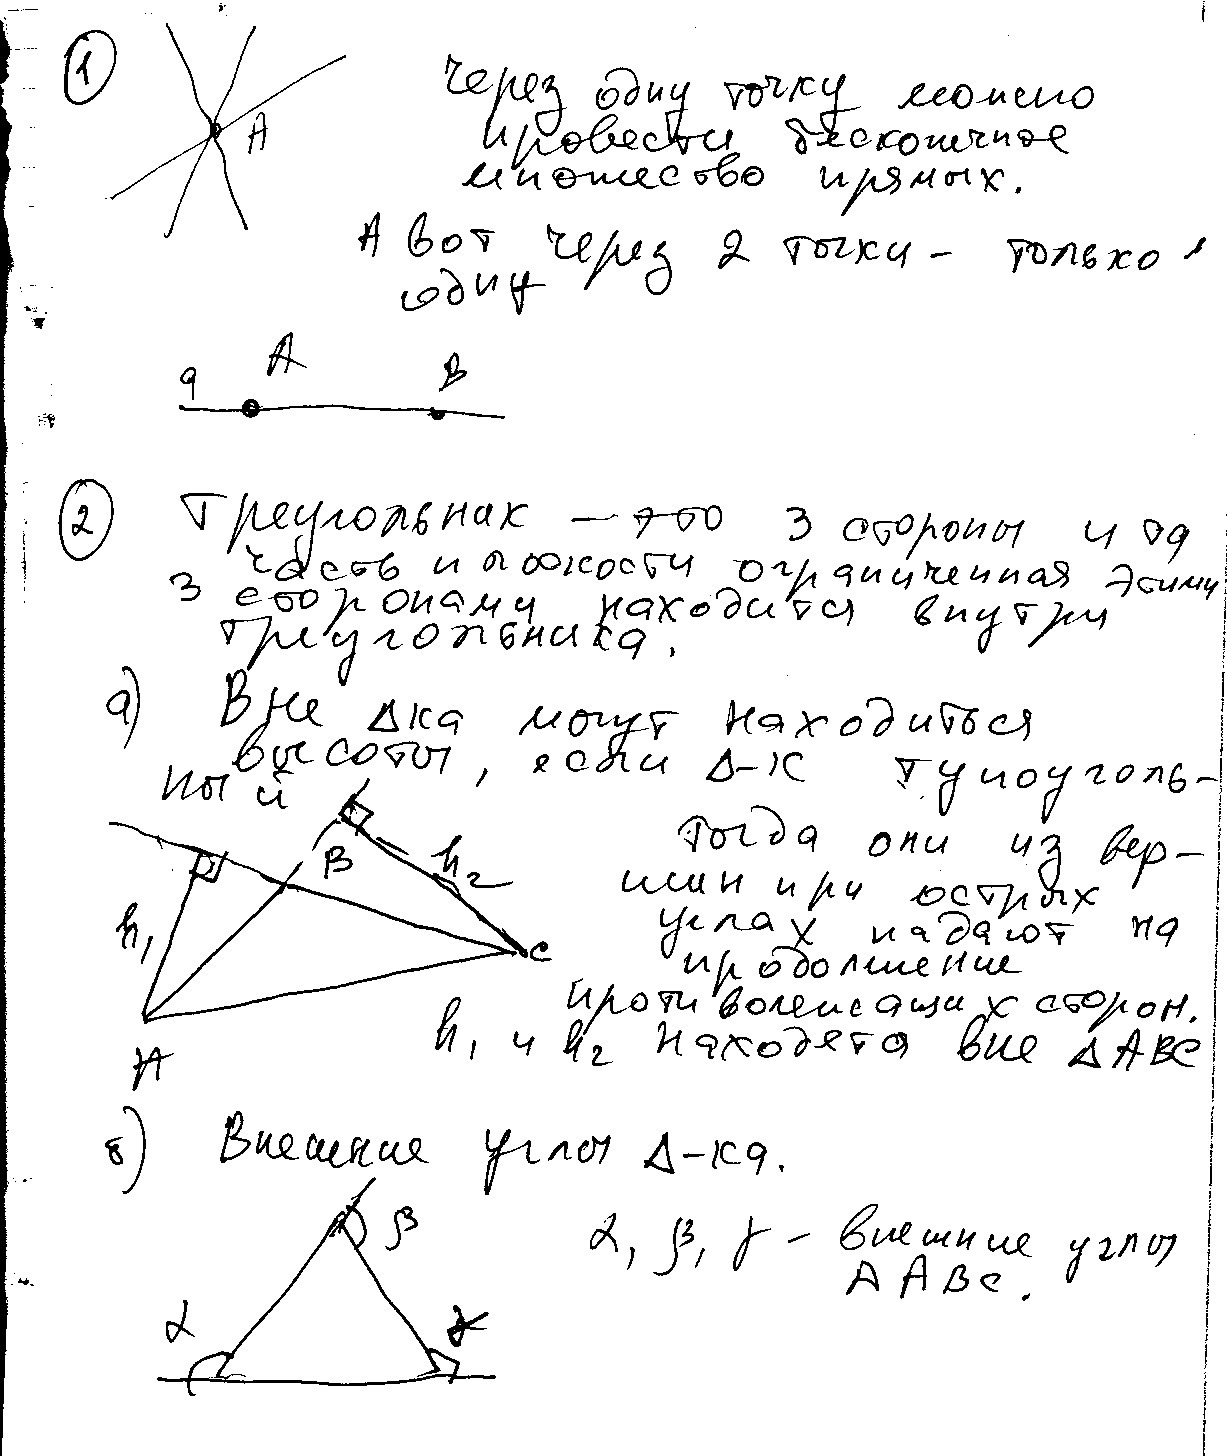 1
Через одну точку можно
провести бесконечное
множество прямых.
А
А вот через 2 точки – только
одну
а А В
2 Треугольник – это 3 стороны и та
часть плоскости ограниченная этими
3 сторонами находится внутри
треугольника.
а) Вне Δка могут находиться
высоты, если Δ-к тупоуголь-
ный
Тогда они из вер-
шин при острых
углах падают на
продолжение
противолежащих сторон.
h₁ и h₂ находятся вне ΔАВС
В h₂
h₁ С
А
б) Внешние углы Δ-ка.
β
α γ
α, β, γ – внешние углы
ΔАВС.